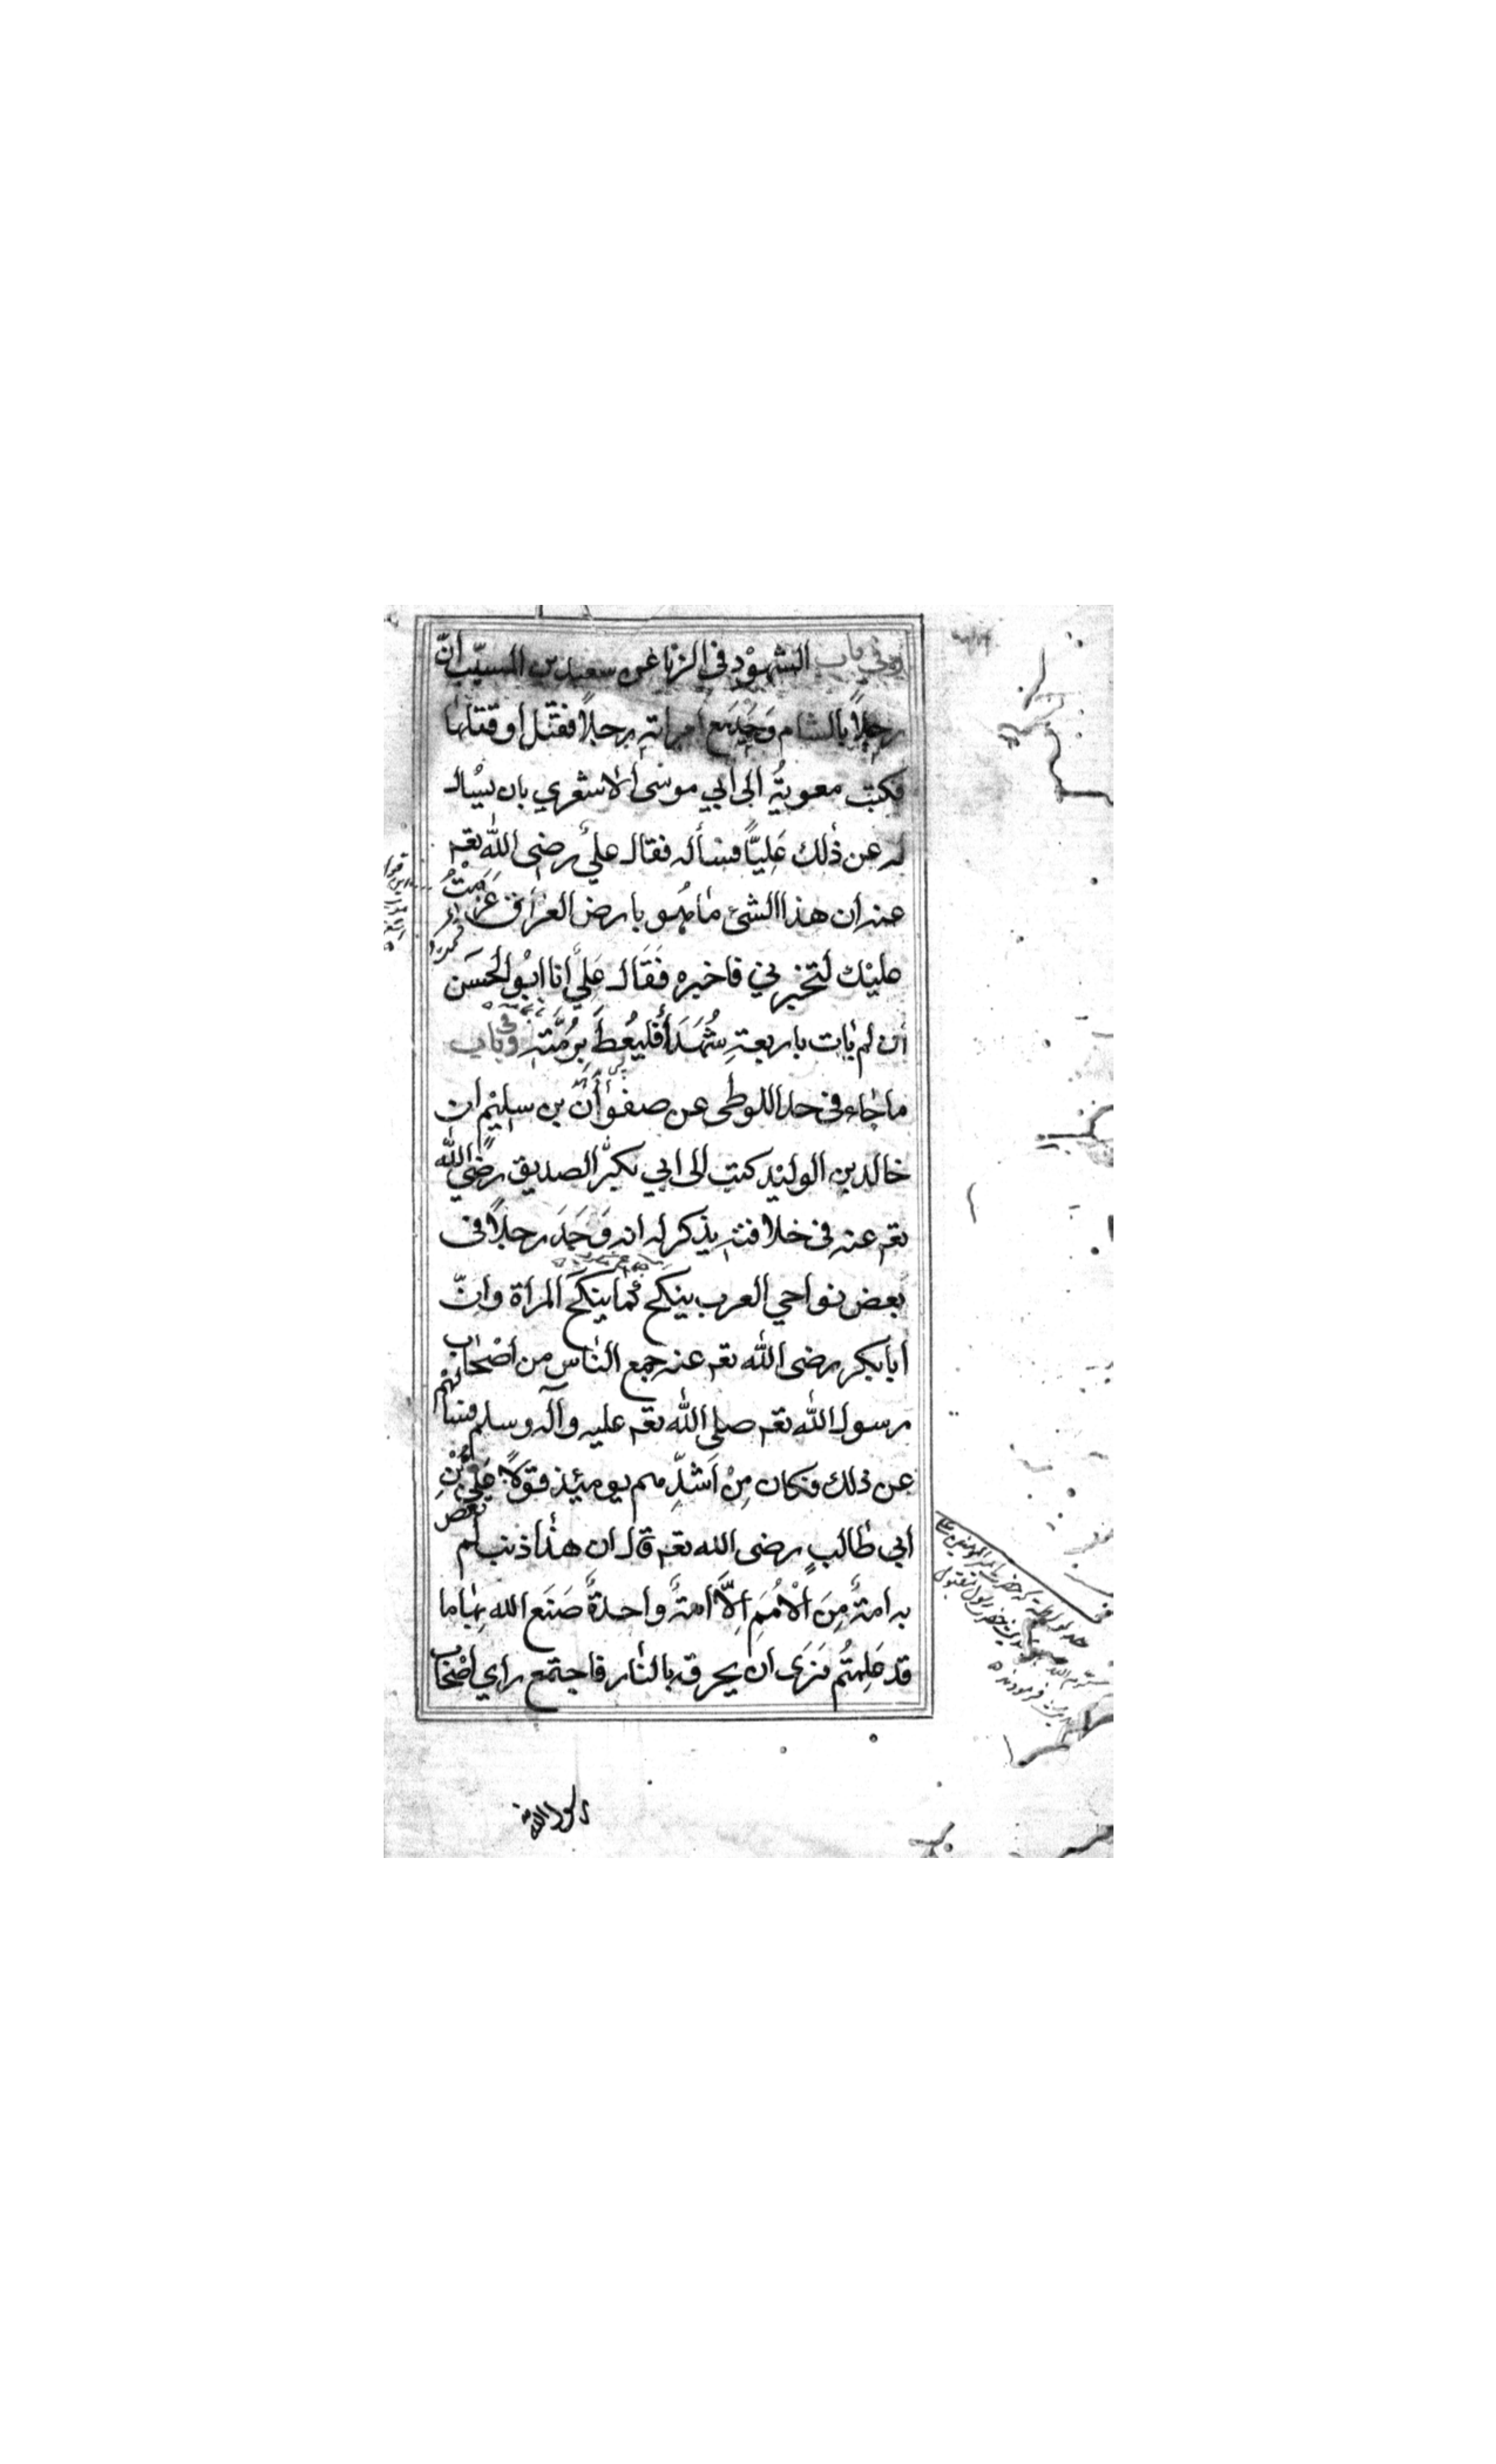 وفي باب الشهود في الزنا عن سعيد بن المسيب انّ
رجلاً بالشام وَجَدَ مع امراته رجلاً فقتل او قتلها
فكتب معوية الى ابي موسى الاشعري بان يسُال
له عن ذلك عَلِيًّا فسأله فقال عليُّ رضى الله تعه
عنه ان هذا الشئ ما هُو بارض العراق عَزَمْتُ
عليْك لتخبرني فاخبره فَقَال عَلِيُّ انا ابُو الحَسَن
ان لم يات باربعةِ شُهَدَأَ فليُعْطَ بِرُمَّتِه وفي باب
ما جاء في حد اللوطى عن صفوأن بن سليْم ان
خالد بن الوليْد كتب الى ابي بكر الصديق رضي الله
تعه عنه في خلافته يذكر له انه وَجَدَ رجلاً في
بعض نواحي العرب ينكح كما ينكح المراة وانّ
ابابكر رضى الله تعه عنه جمع الناس من اصْحاب
رسول الله تعه صلى الله تعه عليه وآله وسلم فسألهم
عن ذلك فكان مِنْ اَشدِّهم يومئيذ قوْلاً عَلِيُّ بْنِ
ابي طالبٍ رضى الله تعه قال ان هذا ذنب لم تعص
به امةٌ مِنَ الْأُمَمِ اِلَّا امةٌ واحدةٌ صَنَع الله بها ما
قد عَلِمتُم نَرَى ان يحرقه بالنار فاجتمع راي اصْحاب
رسول الله